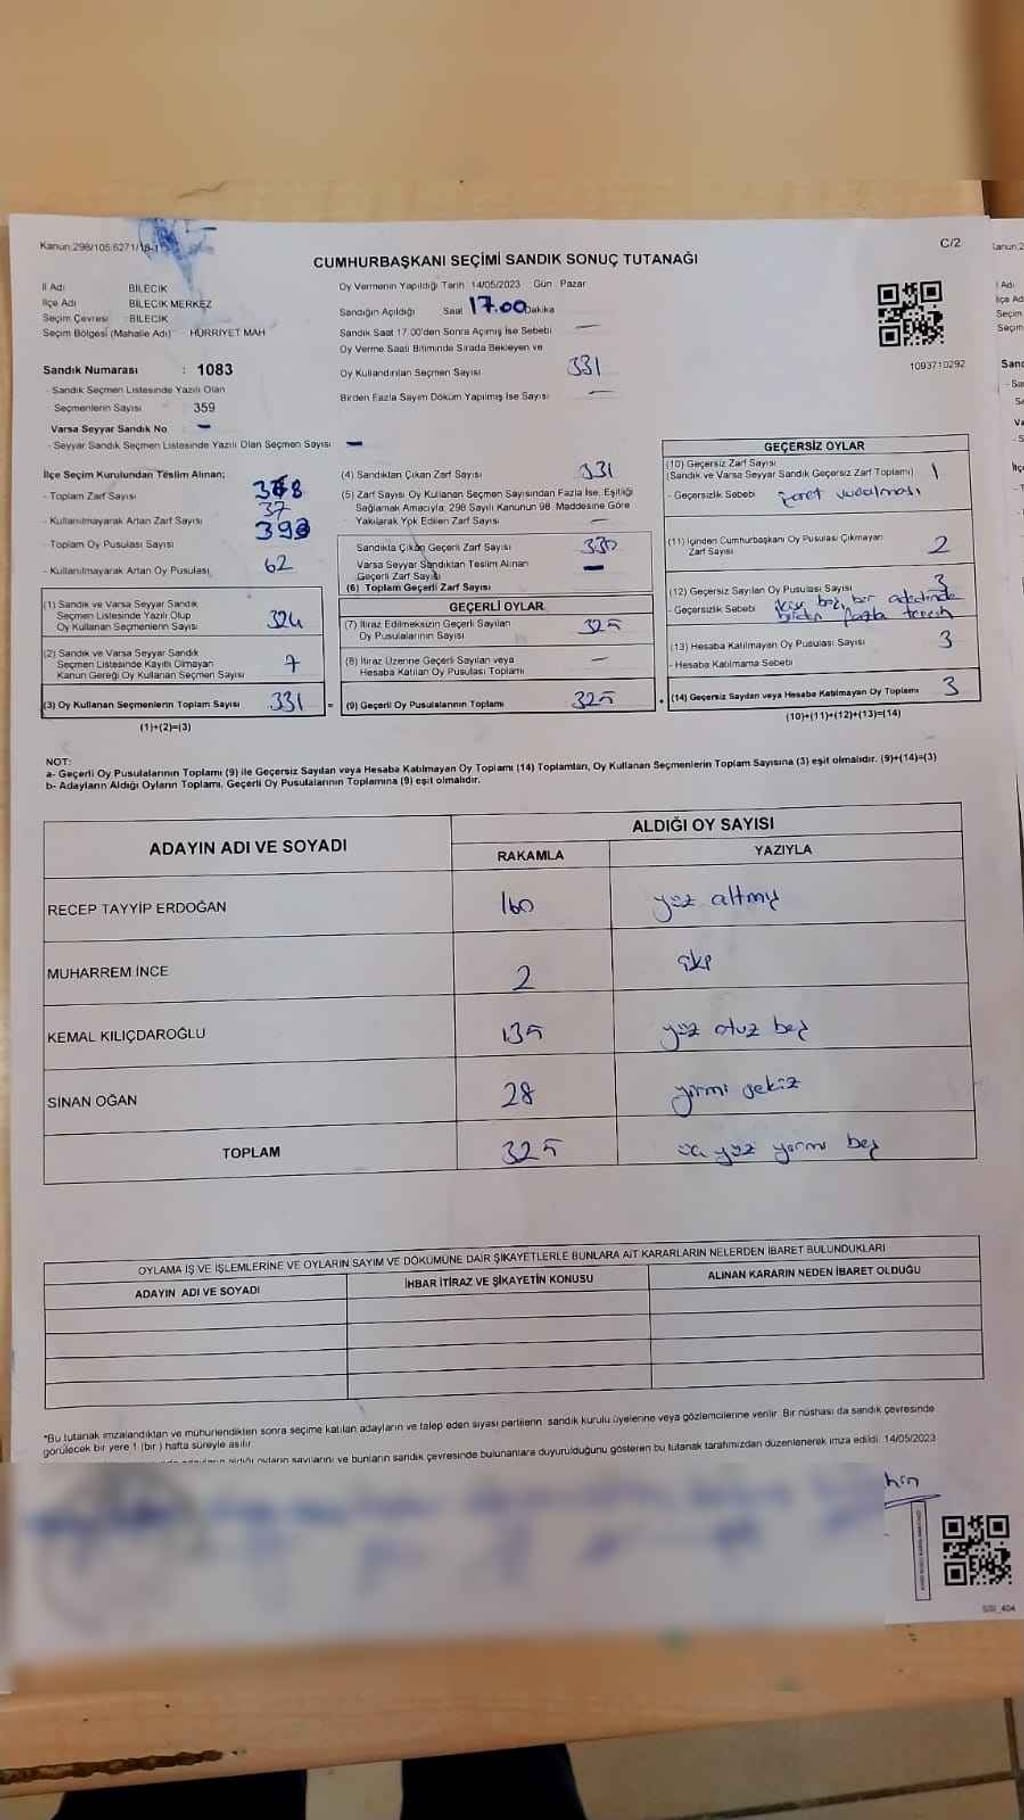 Kanun:298/105:6271/18-1
C/2
CUMHURBAŞKANI SEÇİMİ SANDIK SONUÇ TUTANAĞI
İl Adı BİLECİK
İlçe Adı BİLECİK MERKEZ
Seçim Çevresi BİLECİK
Seçim Bölgesi (Mahalle Adı) HÜRRİYET MAH
Sandık Numarası : 1083
- Sandık Seçmen Listesinde Yazılı Olan
Seçmenlerin Sayısı 359
Varsa Seyyar Sandık No –
- Seyyar Sandık Seçmen Listesinde Yazılı Olan Seçmen Sayısı –
Oy Vermenin Yapıldığı Tarih 14/05/2023 Gün Pazar
Sandığın Açıldığı Saat 17.00 Dakika
Sandık Saat 17.00'den Sonra Açımış İse Sebebi —
Oy Verme Saati Bitiminde Sırada Bekleyen ve
Oy Kullandırılan Seçmen Sayısı 331
Birden Fazla Sayım Döküm Yapılmış İse Sayısı —
1093710292
İlçe Seçim Kurulundan Teslim Alınan;
- Toplam Zarf Sayısı
- Kullanılmayarak Artan Zarf Sayısı 37
- Toplam Oy Pusulası Sayısı
- Kullanılmayarak Artan Oy Pusulası 62
(1) Sandık ve Varsa Seyyar Sandık
Seçmen Listesinde Yazılı Olup
Oy Kullanan Seçmenlerin Sayısı 324
(2) Sandık ve Varsa Seyyar Sandık
Seçmen Listesinde Kayıtlı Olmayan
Kanun Gereği Oy Kullanan Seçmen Sayısı 7
(3) Oy Kullanan Seçmenlerin Toplam Sayısı 331 =
(1)+(2)=(3)
(4) Sandıktan Çıkan Zarf Sayısı 331
(5) Zarf Sayısı Oy Kullanan Seçmen Sayısından Fazla İse, Eşitliği
Sağlamak Amacıyla; 298 Sayılı Kanunun 98. Maddesine Göre
Yakılarak Yok Edilen Zarf Sayısı —
Sandıkta Çıkan Geçerli Zarf Sayısı 330
Varsa Seyyar Sandıktan Teslim Alınan
Geçerli Zarf Sayısı –
(6) Toplam Geçerli Zarf Sayısı
GEÇERLİ OYLAR
(7) İtiraz Edilmeksizin Geçerli Sayılan
Oy Pusulalarının Sayısı 325
(8) İtiraz Üzerine Geçerli Sayılan veya
Hesaba Katılan Oy Pusulası Toplamı —
(9) Geçerli Oy Pusulalarının Toplamı 325 +
GEÇERSİZ OYLAR
(10) Geçersiz Zarf Sayısı
(Sandık ve Varsa Seyyar Sandık Geçersiz Zarf Toplamı) 1
- Geçersizlik Sebebi
(11) İçinden Cumhurbaşkanı Oy Pusulası Çıkmayan
Zarf Sayısı 2
(12) Geçersiz Sayılan Oy Pusulası Sayısı 3
- Geçersizlik Sebebi
birden fazla tercih
(13) Hesaba Katılmayan Oy Pusulası Sayısı 3
- Hesaba Katılmama Sebebi
(14) Geçersiz Sayılan veya Hesaba Katılmayan Oy Toplamı 3
(10)+(11)+(12)+(13)=(14)
NOT:
a- Geçerli Oy Pusulalarının Toplamı (9) ile Geçersiz Sayılan veya Hesaba Katılmayan Oy Toplamı (14) Toplamları, Oy Kullanan Seçmenlerin Toplam Sayısına (3) eşit olmalıdır. (9)+(14)=(3)
b- Adayların Aldığı Oyların Toplamı, Geçerli Oy Pusulalarının Toplamına (9) eşit olmalıdır.
ADAYIN ADI VE SOYADI
ALDIĞI OY SAYISI
RAKAMLA YAZIYLA
RECEP TAYYİP ERDOĞAN 160 yüz altmış
MUHARREM İNCE 2 iki
KEMAL KILIÇDAROĞLU 135 yüz otuz beş
SİNAN OĞAN 28 yirmi sekiz
TOPLAM 325 üç yüz yirmi beş
OYLAMA İŞ VE İŞLEMLERİNE VE OYLARIN SAYIM VE DÖKÜMÜNE DAİR ŞİKAYETLERLE BUNLARA AİT KARARLARIN NELERDEN İBARET BULUNDUKLARI
ADAYIN ADI VE SOYADI İHBAR İTİRAZ VE ŞİKAYETİN KONUSU ALINAN KARARIN NEDEN İBARET OLDUĞU
*Bu tutanak imzalandıktan ve mühürlendikten sonra seçime katılan adayların ve talep eden siyasi partilerin sandık kurulu üyelerine veya gözlemcilerine verilir. Bir nüshası da sandık çevresinde
görülecek bir yere 1 (bir) hafta süreyle asılır.
oyların sayılarını ve bunların sandık çevresinde bulunanlara duyurulduğunu gösteren bu tutanak tarafımızdan düzenlenerek imza edildi. 14/05/2023